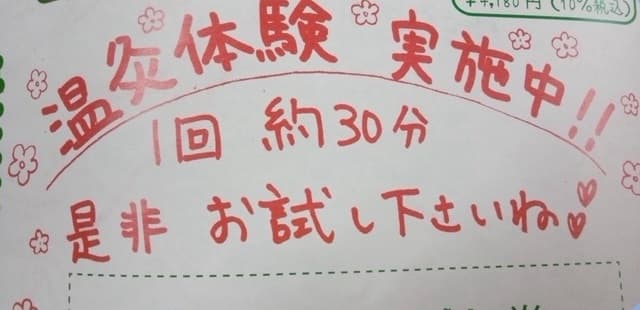 ¥4,180円(10%税込)
温灸体験 実施中!!
1回 約30分
是非 お試し下さいね